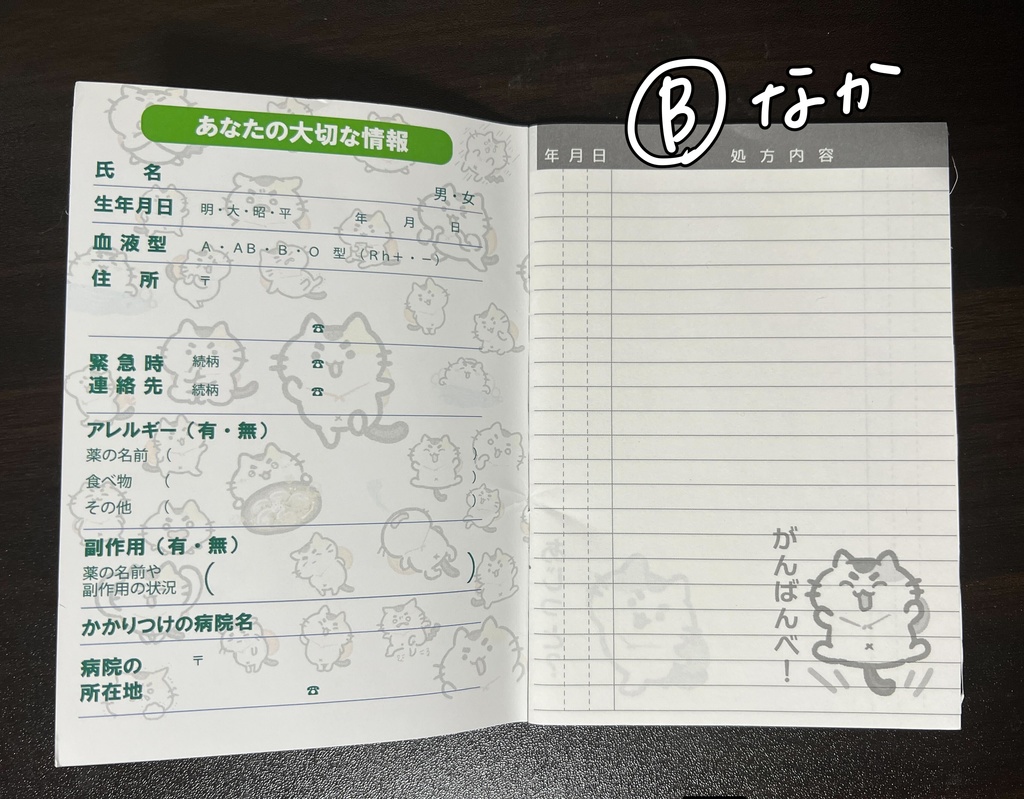 Ⓑ なか
あなたの大切な情報
氏 名
男・女
生年月日 明・大・昭・平 年 月 日
血液型 A・AB・B・O 型 (Rh＋・－)
住 所 〒
☎
緊急時 続柄 ☎
連絡先 続柄 ☎
アレルギー（有・無）
薬の名前 （ ）
食べ物 （ ）
その他 （ ）
副作用（有・無）
薬の名前や
副作用の状況 （ ）
かかりつけの病院名
病院の 〒
所在地 ☎
年月日 処方内容
がんばんべ！